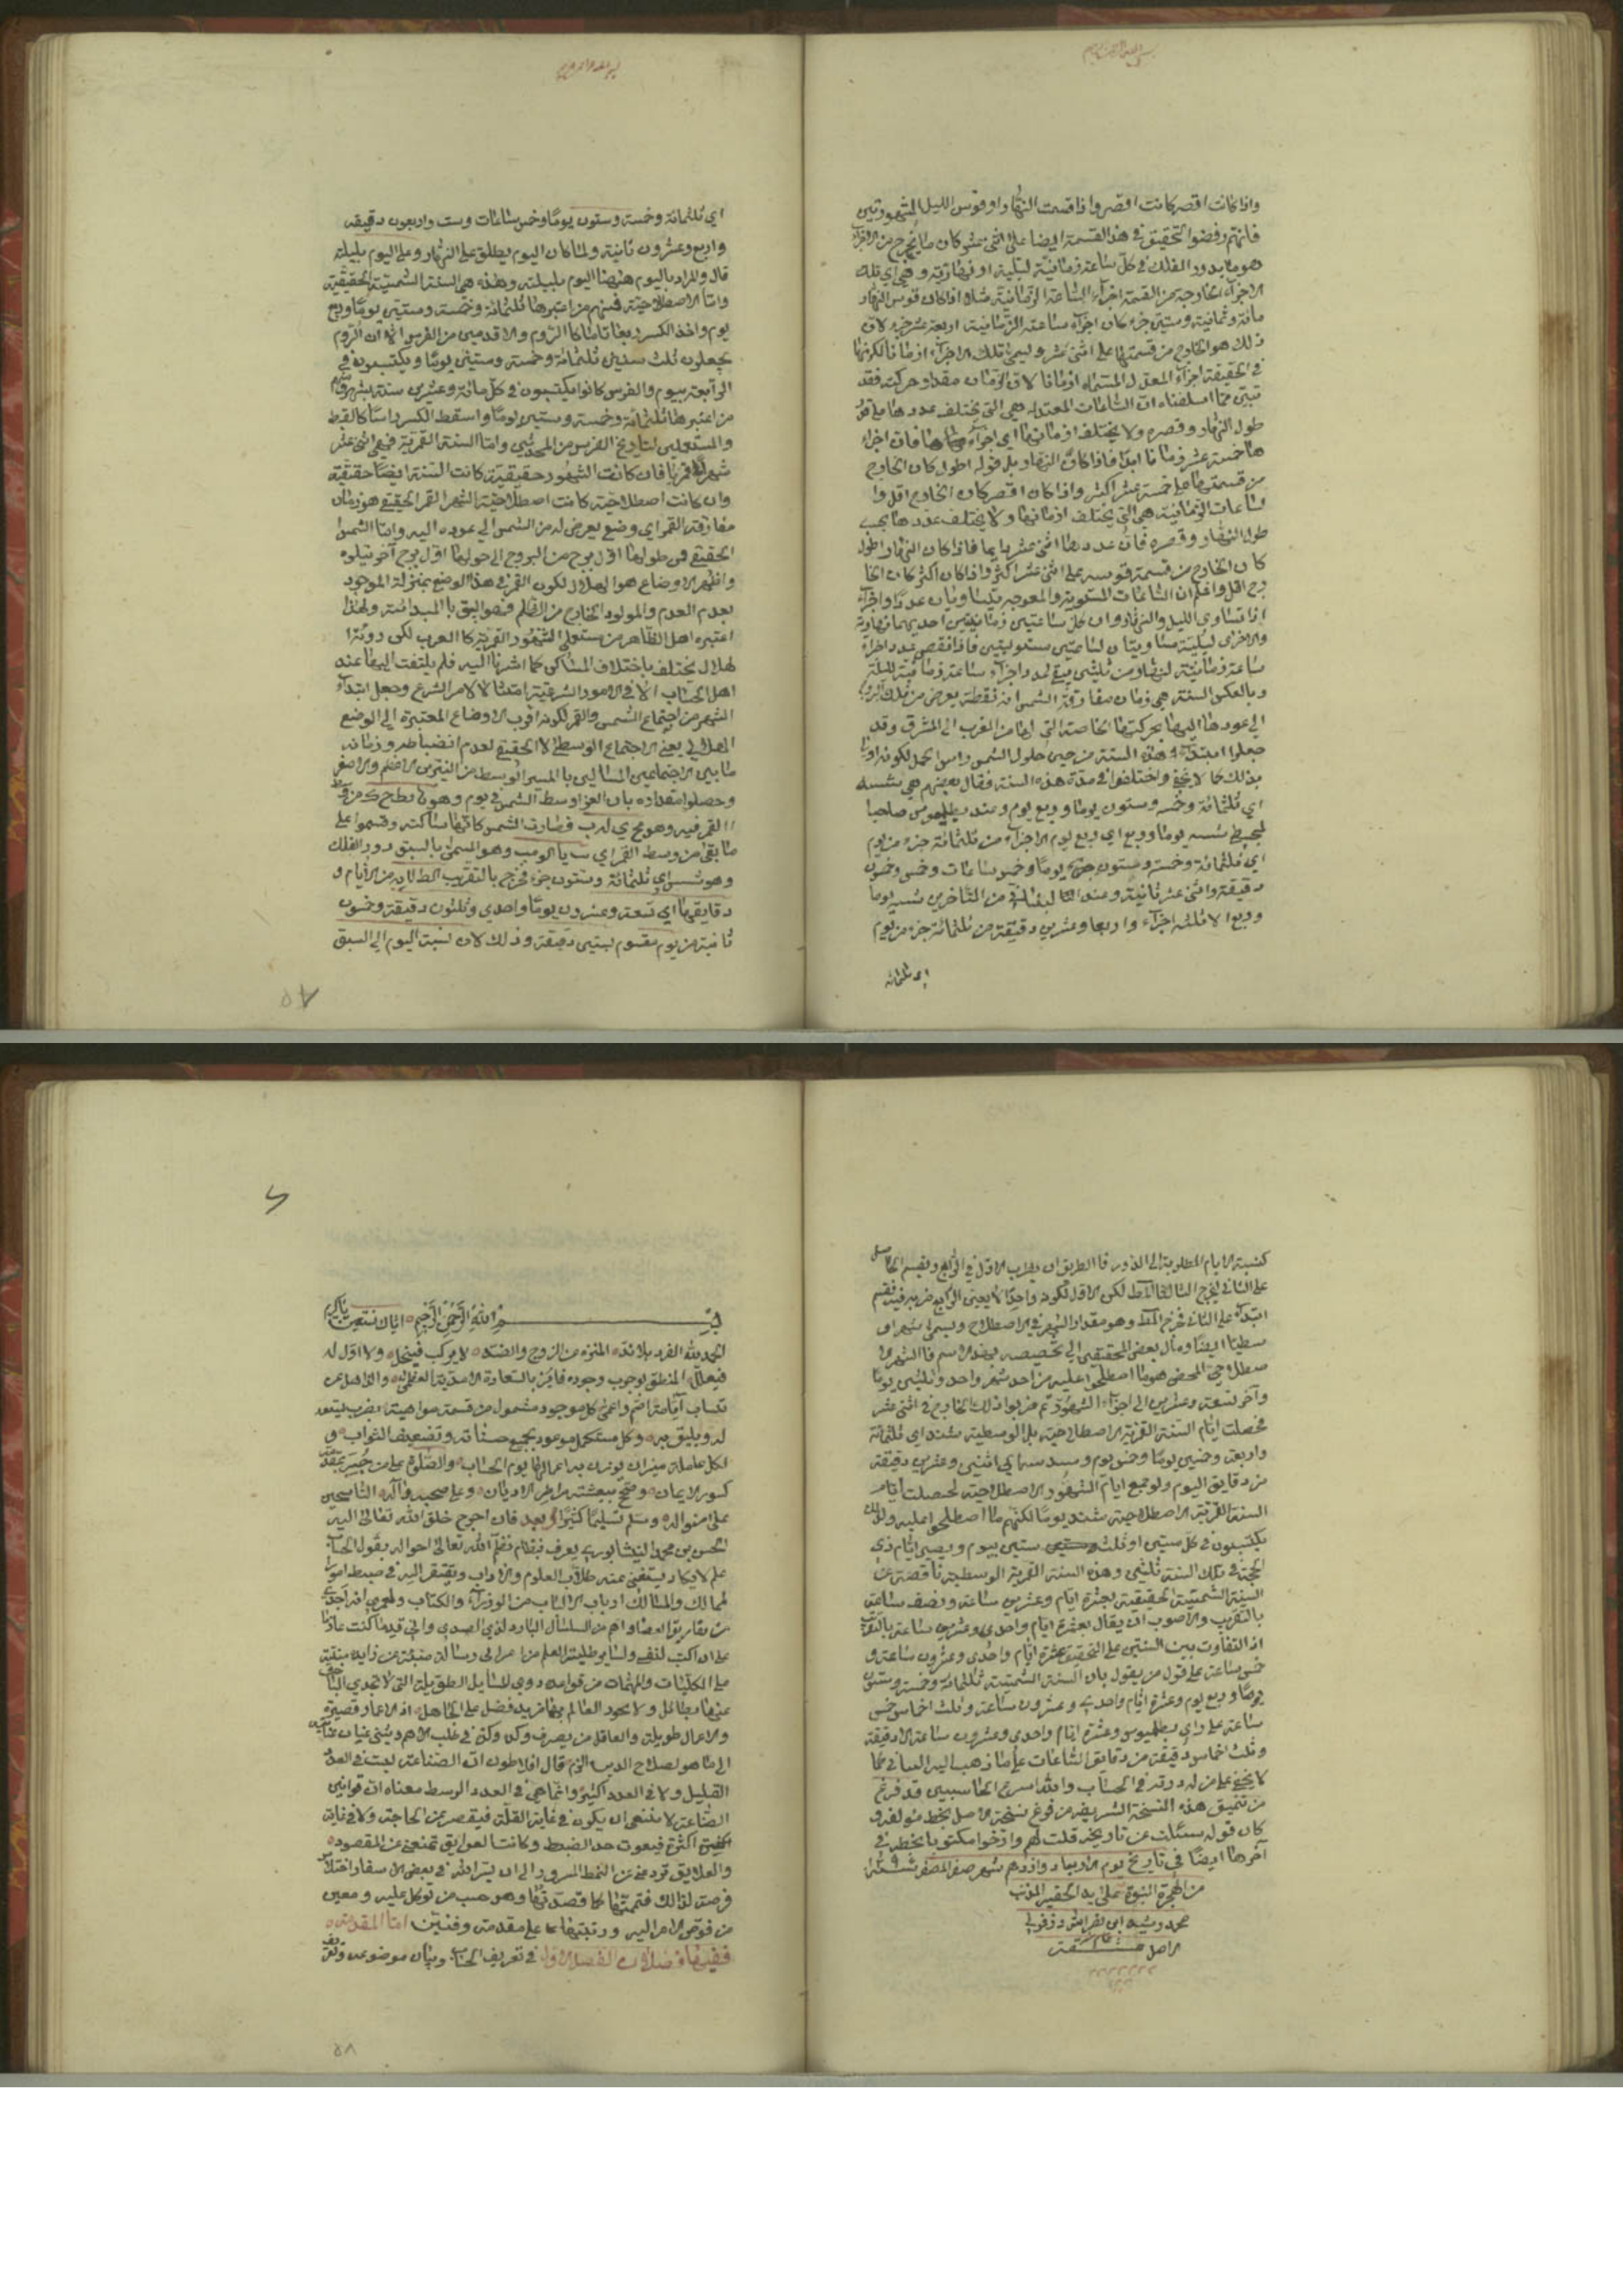 واذا كانت اقصر كانت اقصر واذا قسمت النهار او قوس الليل المشهورتين
فانهم رفضوا التحقيق في هذا القسمة ايضا على اثنى عشر كان ما يخرج من الاجزاء
هو ما يدور الفلك في كل ساعة زمانية ليلية او نهارية وهي اي تلك
الاجزاء الخارجة من القسمة اجزاء الساعة الزمانية مثلا اذا كان قوس النهار
مائة وثمانية وستين جزء كان اجزاء ساعته الزمانية اربعة عشر جزء لان
ذلك هو الخارج من قسمتها على اثنى عشر وليسمى تلك الاجزاء ازمانا لكونها
في الحقيقة اجزاء المعدل المسماه ازمانا لان الزمان مقدار حركته فقد
تبين مما اسلفناه ان الساعات المعتدلة هي التي يختلف عددها على قدر
طول النهار وقصره ولا يختلف ازمانها اي اجزاء فان اجزاء
ها خمسة عشر زمانا ابدا فاذا كان النهار اطول كان الخارج
من قسمتها على خمسة عشر اكثر واذا كان اقصر كان الخارج اقل وا
لساعات الزمانية هي التي يختلف ازمانها ولا يختلف عددها بحسب
طول النهار وقصره فان عددها اثنى عشر دايما فاذا كان النهار اطول
كان الخارج من قسمة قوسه على اثنى عشر اكثر واذا كان اكثر كان الخا
رج اقل واعلم ان الساعات المستوية والمعوجة يتساويان عددا واجزاء
اذا تساوى الليل والنهار وان كل ساعتين زمانيتين احديهما نهارية
والاخرى ليلية مساويتان لساعتين مستويتين فاذا نقص عدد اجزاء
ساعة زمانية لنهار من ثلثين بقي عدد اجزاء ساعة زمانية لليلة
وبالعكس السنة هي زمان مفارقة الشمس اية نقطة يعرض من فلك البروج
الى عودها اليها بحركتها الخاصة التي لها من المغرب الى المشرق وقد
جعلوا ابتداء هذه السنة من حين حلول الشمس راس الحمل لكونه اولى
بذلك كما لا يخفى واختلفوا في مدة هذه السنة فقال بعضهم هي شسه
اي ثلثمائة وخمسة وستون يوما وربع يوم وعند بطلميوس صاحب
المجسطي شسه يوما وربع اي ربع يوم الا جزء من ثلثمائة جزء من يوم
اي ثلثمائة وخمسة وستون يوما وخمس ساعات وخمس وخمسون
دقيقة واثنى عشر ثانية وعند من المتاخرين شسه يوما
وربع الا ثلثة اجزاء واربعا وعشرين دقيقة من ثلثمائة جزء من يوم
اي ثلثمائة
اي ثلثمائة وخمسة وستون يوما وخمس ساعات وست واربعون دقيقة
واربع وعشرون ثانية ولما كان اليوم يطلق على النهار وعلى اليوم بليلته
قال والمراد باليوم ههنا اليوم بليلته وهذه هي السنة الشمسية الحقيقية
واما الاصطلاحية فمنهم من اعتبرها ثلثمائة وخمسة وستين يوما وربع
يوم واخذ الكسر ربعا تاما كالروم والاقدمين من الفرس الا ان الروم
يجعلون ثلث سنين ثلثمائة وخمسة وستين يوما ويكبسون في
الرابعة بيوم والفرس كانوا يكبسون في كل مائة وعشرين سنة بشهر ومنهم
من اعتبرها ثلثمائة وخمسة وستين يوما واسقط الكسر راسا كالقبط
والمستعملين لتاريخ الفرس من المحدثين واما السنة القمرية فهي اثنى عشر
شهرا قمريا فان كانت الشهور حقيقية كانت السنة ايضا حقيقية
وان كانت اصطلاحية كانت اصطلاحية الشهر القمر الحقيقي هو زمان
مفارقة القمر اي وضع يعرض له من الشمس الى عوده اليه واما الشمس
الحقيقي فمن حلولها اول برج من البروج الى حولها اول برج آخر يتلوه
واظهر الاوضاع هو الهلال لكون القمر في هذا الوضع بمنزلة الموجود
بعدم العدم والمولود الخارج من الظلم فهو اليق بالمبدائية ولهذا
اعتبره اهل الظاهر من مستعملي الشهور القمرية كالعرب لكن رؤية ا
لهلال يختلف باختلاف المساكن كما اشرنا اليه فلم يلتفت اليها عند
اهل الحساب الا في الامور الشرعية امتثالا لامر الشرع وجعل ابتداء
الشهر من اجتماع الشمس والقمر لكونه اقرب الاوضاع المعتبرة الى الوضع
الهلالي يعني الاجتماع الوسطي لا الحقيقي لعدم انضباطه وزمان
ما بين الاجتماعين بالمسير الوسط من النيرين الاعظم والاصغر
وحصلوا مقداره بان اوسط الشمس في يوم وهو
القمر فيه وهو فصارت الشمس كانها ساكنة وقسموا على
ما بقى من وسط القمر اي وهو المسمى بالسبق دور الفلك
وهو شس اي ثلثمائة وستون جزء فخرج بالتقريب من الايام و
دقايقها اي تسعة وعشرون يوما واحدى وثلثون دقيقة وخمسون
ثانية من يوم مقسوم بستين دقيقة وذلك لان نسبة اليوم الى السبق
٥٧
كنسبة الايام المطلوبة الى الدور فالطريق ان يضرب الاول في الرابع ويقسم الحاصل
على الثاني ليخرج الثالث لكن الاول لكونه واحدا لا يعنى الرابع ضربه فيه فقسم
ابتداء على الثاني فخرج وهو مقدار الشهر في الاصطلاح ويسمى شهرا و
سطيا ايضا ومال بعض المحققين الى تخصيصه بهذا الاسم فالشهر الا
صطلاحي المحض هو ما اصطلحوا عليه من اخذ شهر واحد وثلثين يوما
وآخر تسعة وعشرين الى اجزاء الشهور ثم ضربوا ذلك الخارج في اثنى عشر
فحصلت ايام السنة القمرية الاصطلاحية بل الوسطية شند اي ثلثمائة
واربعة وخمسين يوما وخمس يوم وسدسه اي اثنين وعشرين دقيقة
من دقايق اليوم ولو جمع ايام الشهور الاصطلاحية لحصلت ايام
السنة القمرية الاصطلاحية شند يوما لكنهم ما اصطلحوا عليه ولذلك
يكبسون في كل سنتين او ثلث سنين بيوم ويصير ايام ذي
الحجة في تلك السنة ثلثين وهذه السنة القمرية الوسطية ناقصة عن
السنة الشمسية الحقيقية بعشرة ايام وعشرين ساعة ونصف ساعة
بالتقريب والاصوب ان يقال بعشرة ايام واحدى وعشرين ساعة بالتقريب
اذ التفاوت بين السنتين على التحقيق عشرة ايام واحدى وعشرون ساعة و
خمس ساعة على قول من يقول بان السنة الشمسية ثلثمائة وخمسة وستون
يوما وربع يوم وعشرة ايام واحدى وعشرون ساعة وثلث اخماس خمس
ساعة على راي بطلميوس وعشرة ايام واحدى وعشرون ساعة الا دقيقة
وثلث اخماس دقيقة من دقايق الساعات على ما ذهب اليه كما
لا يخفى على من له دربة في الحساب والله اسرع الحاسبين قد فرغ
من تنميق هذه النسخة الشريفة من فروغ نسخة الاصل بخط مؤلفه و
كان قوله سئلت عن تاريخه قلت لهم وارخوا مكتوبا بخطه في
آخرها ايضا في تاريخ يوم الاربعاء دوازدهم شهر صفر المظفر
من الهجرة النبوية على يد الحقير المذنب
محمد رشيد ابن
الاصل
بسم الله الرحمن الرحيم اياك نستعين يا كريم
الحمد لله الفرد بلا ند المنزه عن الزوج والضد لا يركب فينحل ولا اول له
فيعلل المنطق لوجوب وجوده فايز بالسعادة الابدية العظمى والذاهل عن
لديه ويليق به وكل مستكمل موعود بجميع حسناته وتضعيف الثواب و
لكل عاملة ميزان يوزن به اعمالها يوم الحساب والصلوة على من جبر بمقدمه
كسور الايمان وصح ببعثته امر الاديان وعلى صحبه وآله الناسجين
على منواله وسلم تسليما كثيرا وبعد فان احوج خلق الله تعالى اليه
الحسن بن محمد النيشابوري يعرف بنظام نظم الله تعالى احواله يقول الحساب
علم لا يكاد يستغنى عنه طلاب العلوم والاداب ويفتقر اليه في ضبط امور ا
لممالك والمسالك ارباب الالباب من الوزراء والكتاب ولعمري انه اجدى
من تفاريق العصا واهم من السلسال البارد لذي الصدى واني قديما كنت عازما
على ان اكتب لنفسي ولسائر طلبة العلم من اخواني رسالة
على الكليات والمهمات من قواعده دون المسايل الطويلة التي لا تجدي الباحث
عنها بطائل ولا يعود العالم بها بمزيد فضل على الجاهل اذ الاعمار قصيرة
والاعمال طويلة والعاقل من يصرف وكده وكده في طلب الاهم ويثني عنان عنايته
الى ما هو لصلاح الدين الزم قال افلاطون ان الصناعة ليست في العدد
القليل ولا في العدد الكثير وانما هي في العدد الوسط معناه ان قوانين
الصناعة لا ينبغي ان يكون في غاية القلة فيقصر عن الحاجة ولا في غاية
الكثرة فيفوت حد الضبط وكانت العوايق تمنعني عن المقصود
والعلايق تردعني عن النمط المسرود الى ان يسر الله في بعض الاسفار اختلاس
فرصة لذلك فتممتها كما قصدتها وهو حسب من توكل عليه ومعين
من فوض الامر اليه ورتبتها على مقدمة وفنين اما المقدمة
ففيها فصلان الفصل الاول في تعريف الحساب وبيان موضوعه وتعريف
٥٨